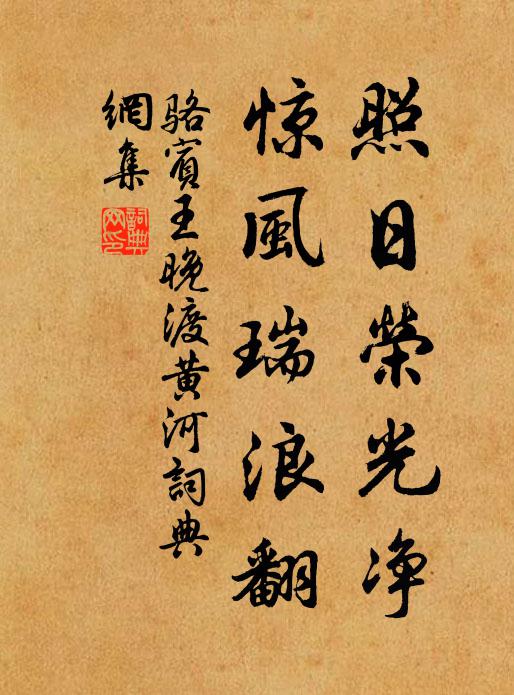 照日榮光净
惊風瑞浪翻
骆賓王晚渡黄河詞典
網集
詞典
网印